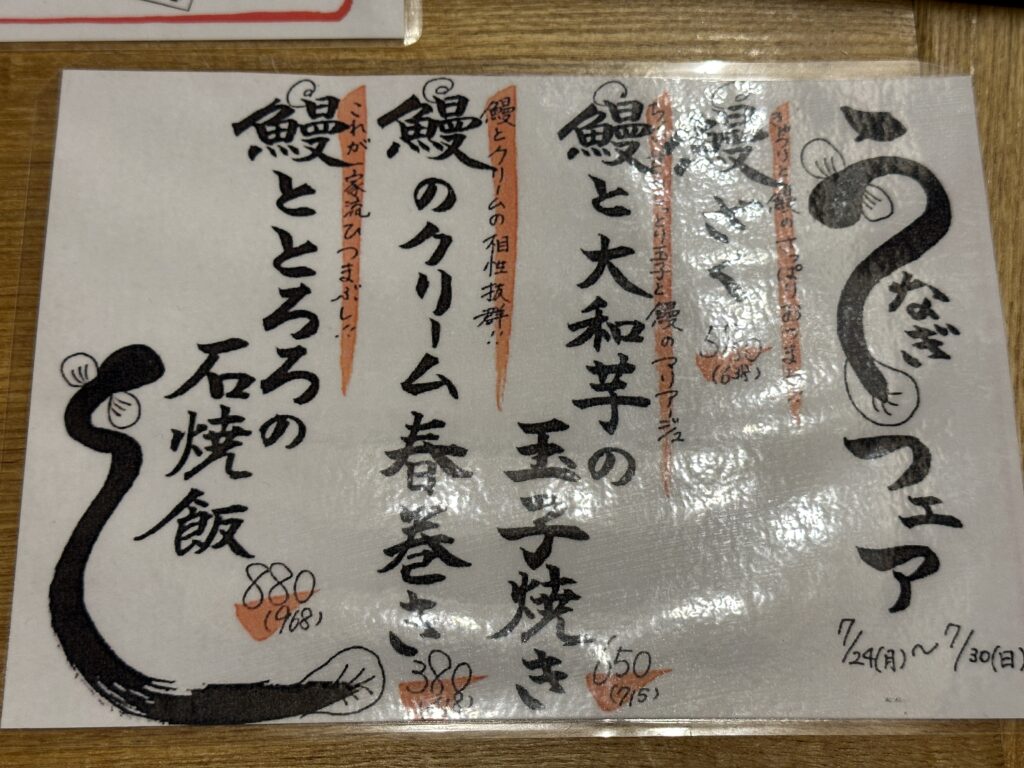 うなぎフェア
7/24(月)〜7/30(日)
きゅうりと鰻のさっぱりおつまみ
鰻ざく
580
(638)
とり玉子と鰻のマリアージュ
鰻と大和芋の
玉子焼き
650
(715)
鰻とクリームの相性抜群!!
鰻のクリーム春巻き
380
(418)
これが一家流ひつまぶし!!
鰻ととろろの
石焼飯
880
(968)